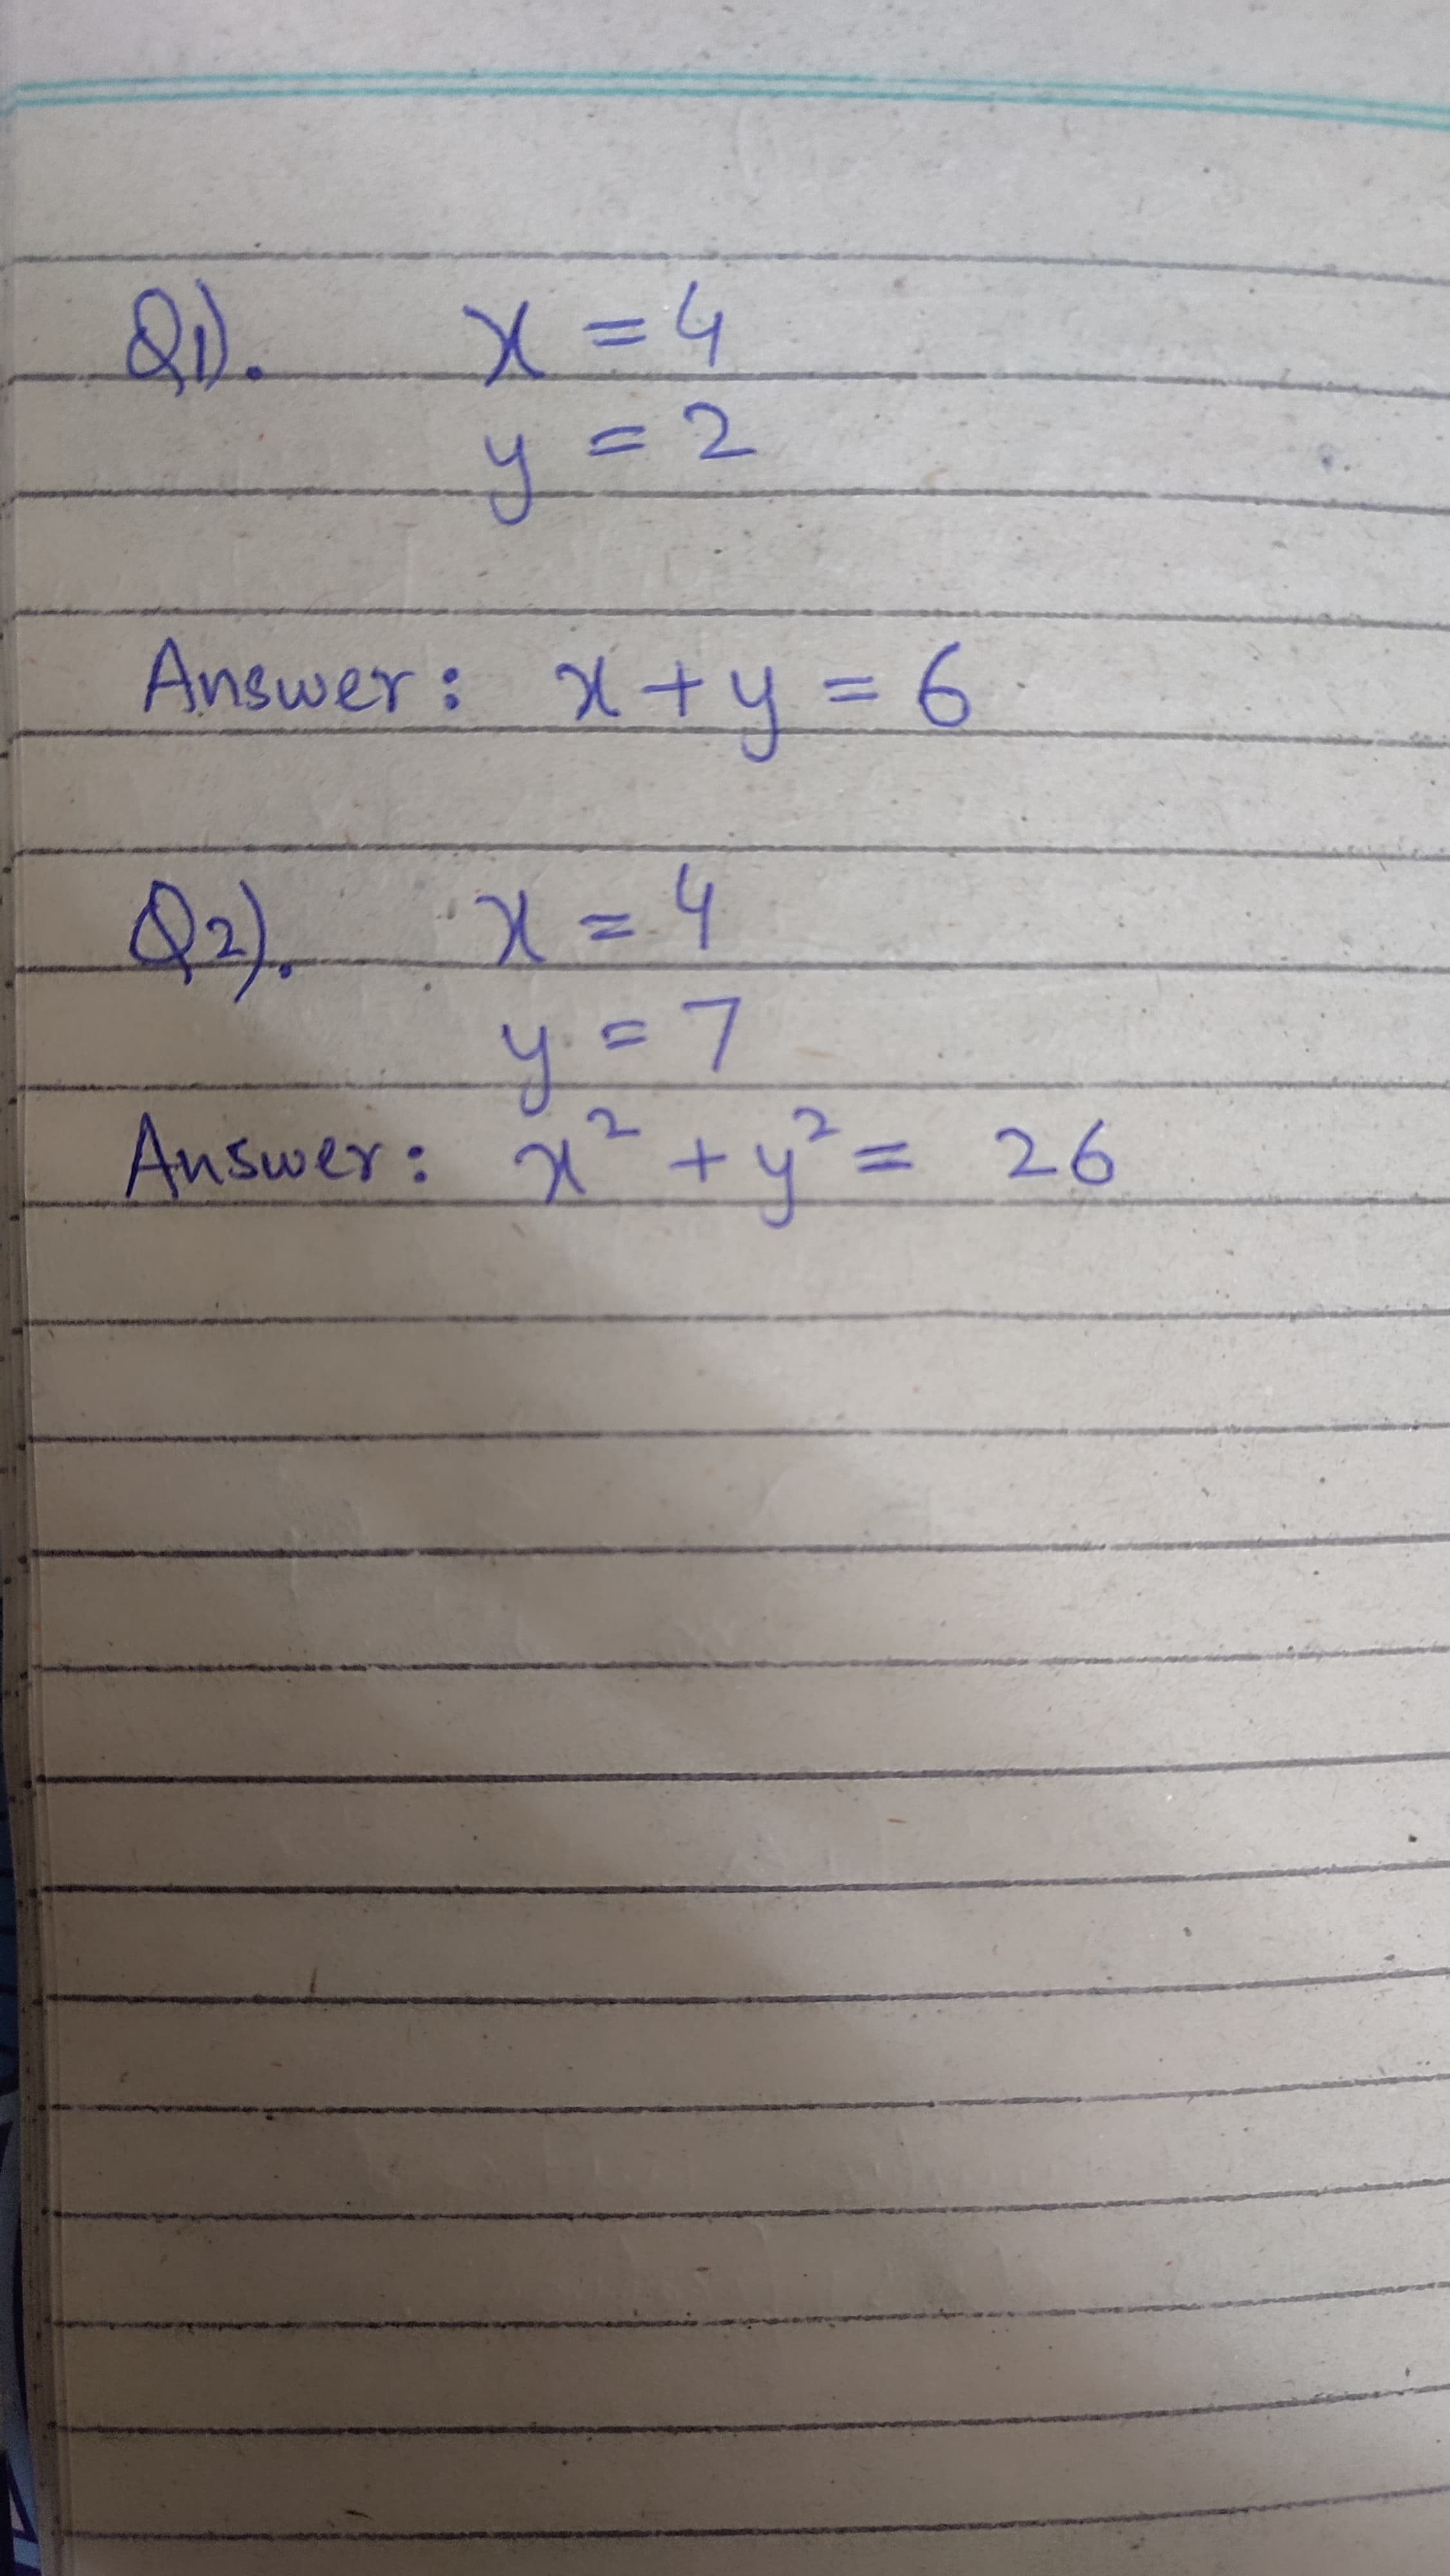 Q1). x = 4
y = 2
Answer: x + y = 6
Q2). x = 4
y = 7
Answer: x² + y² = 26